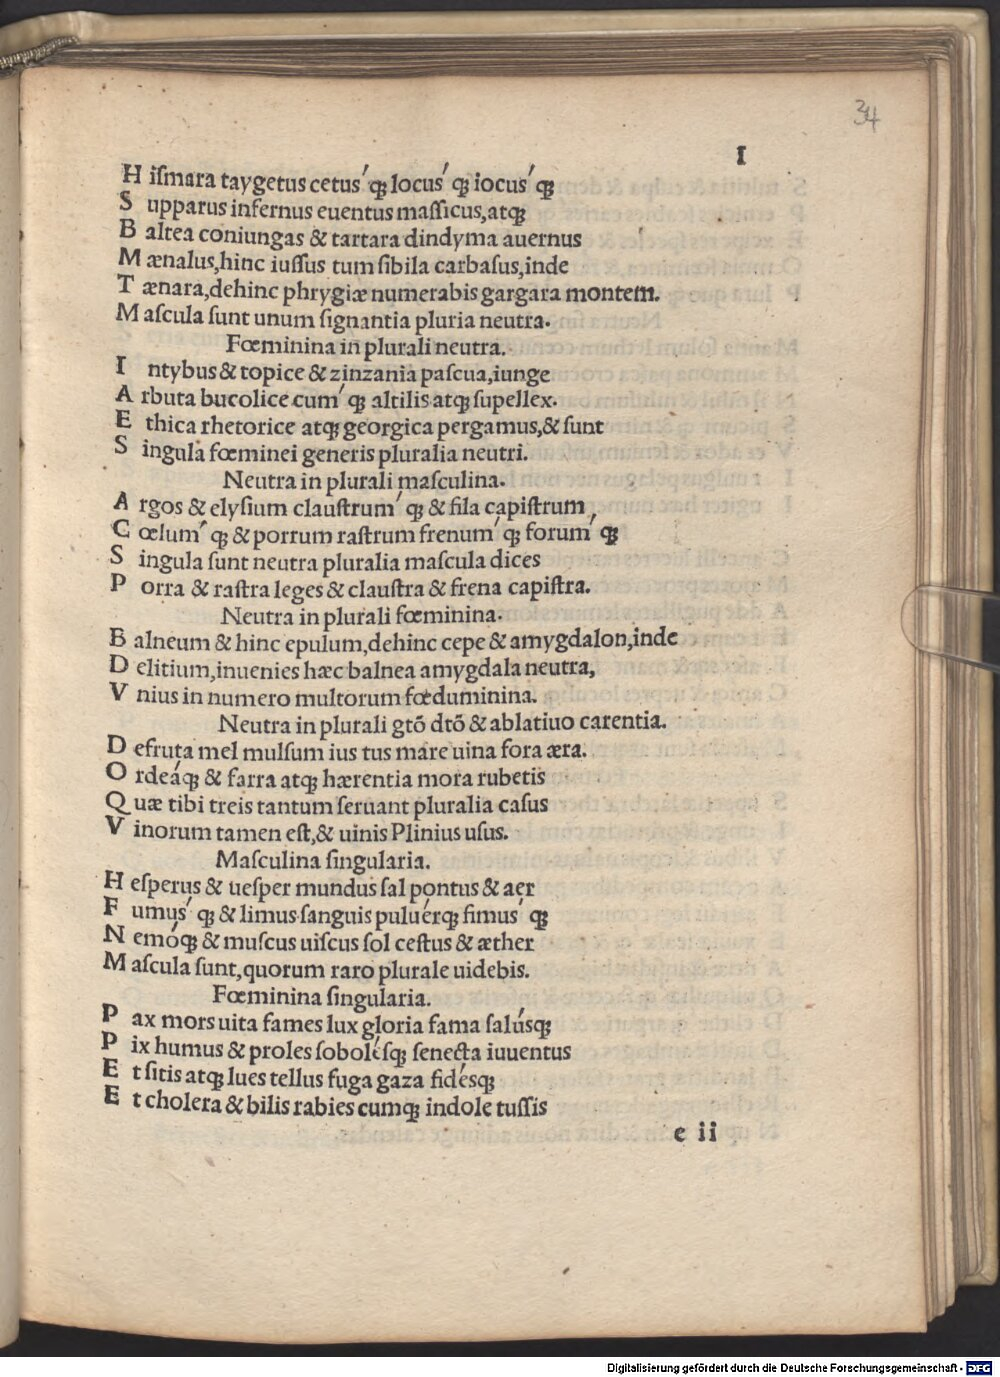 34
I
H iſmara taygetus cetus' qꝫ locus' qꝫ iocus' qꝫ
S upparus infernus euentus maſſicus,atqꝫ
B altea coniungas & tartara dindyma auernus
M ænalus,hinc iuſſus tum ſibila carbaſus,inde
T ænara,dehinc phrygiæ numerabis gargara montem.
M aſcula ſunt unum ſignantia pluria neutra.
Fœminina in plurali neutra.
I ntybus & topice & zinzania paſcua,iunge
A rbuta bucolice cum' qꝫ altilis atqꝫ ſupellex.
E thica rhetorice atqꝫ georgica pergamus,& ſunt
S ingula fœminei generis pluralia neutri.
Neutra in plurali maſculina.
A rgos & elyſium clauſtrum' qꝫ & fila capiſtrum
C œlum' qꝫ & porrum raſtrum frenum' qꝫ forum' qꝫ
S ingula ſunt neutra pluralia maſcula dices
P orra & raſtra leges & clauſtra & frena capiſtra.
Neutra in plurali fœminina.
B alneum & hinc epulum,dehinc cepe & amygdalon,inde
D elitium,inuenies hæc balnea amygdala neutra,
V nius in numero multorum fœduminina.
Neutra in plurali gtō dtō & ablatiuo carentia.
D efruta mel mulſum ius tus mare uina fora æra.
O rdeáqꝫ & farra atqꝫ hærentia mora rubetis
Q uæ tibi treis tantum ſeruant pluralia caſus
V inorum tamen eſt,& uinis Plinius uſus.
Maſculina ſingularia.
H eſperus & ueſper mundus ſal pontus & aer
F umus' qꝫ & limus ſanguis puluérqꝫ fimus' qꝫ
N emóqꝫ & muſcus uiſcus ſol ceſtus & æther
M aſcula ſunt,quorum raro plurale uidebis.
Fœminina ſingularia.
P ax mors uita fames lux gloria fama ſalúsqꝫ
P ix humus & proles ſobolésqꝫ ſenecta iuuentus
E t ſitis atqꝫ lues tellus fuga gaza fidésqꝫ
E t cholera & bilis rabies cumqꝫ indole tuſſis
e ii
Digitalisierung gefördert durch die Deutsche Forschungsgemeinschaft - DFG